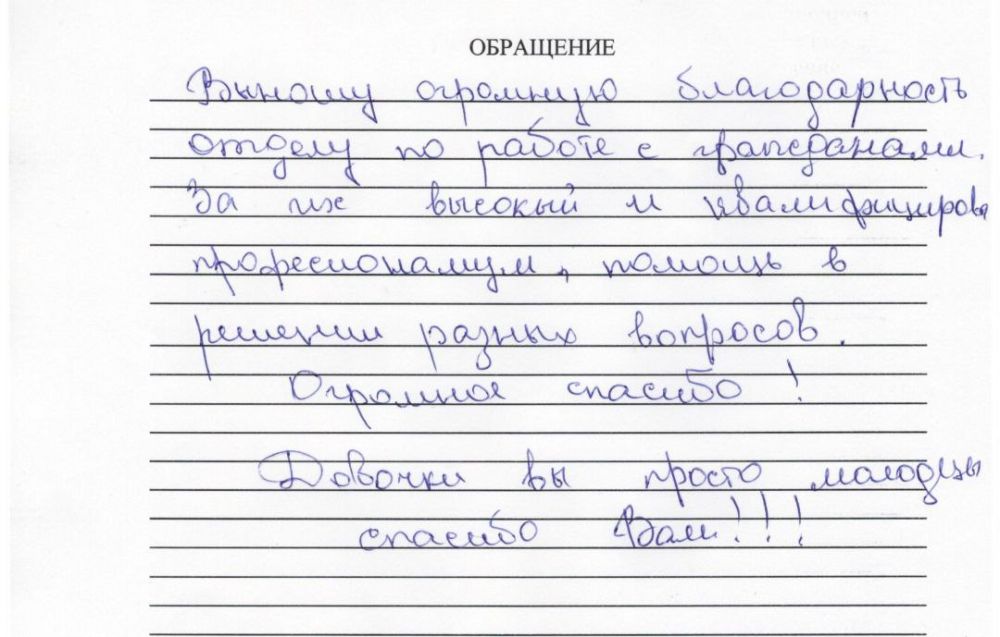 ОБРАЩЕНИЕ
Выношу огромную благодарность
отделу по работе с гражданами.
За их высокый и квалифицирова
професионализм, помощь в
решении разных вопросов.
Огромное спасибо!
Довочки вы просто малодцы
спасибо Вам!!!